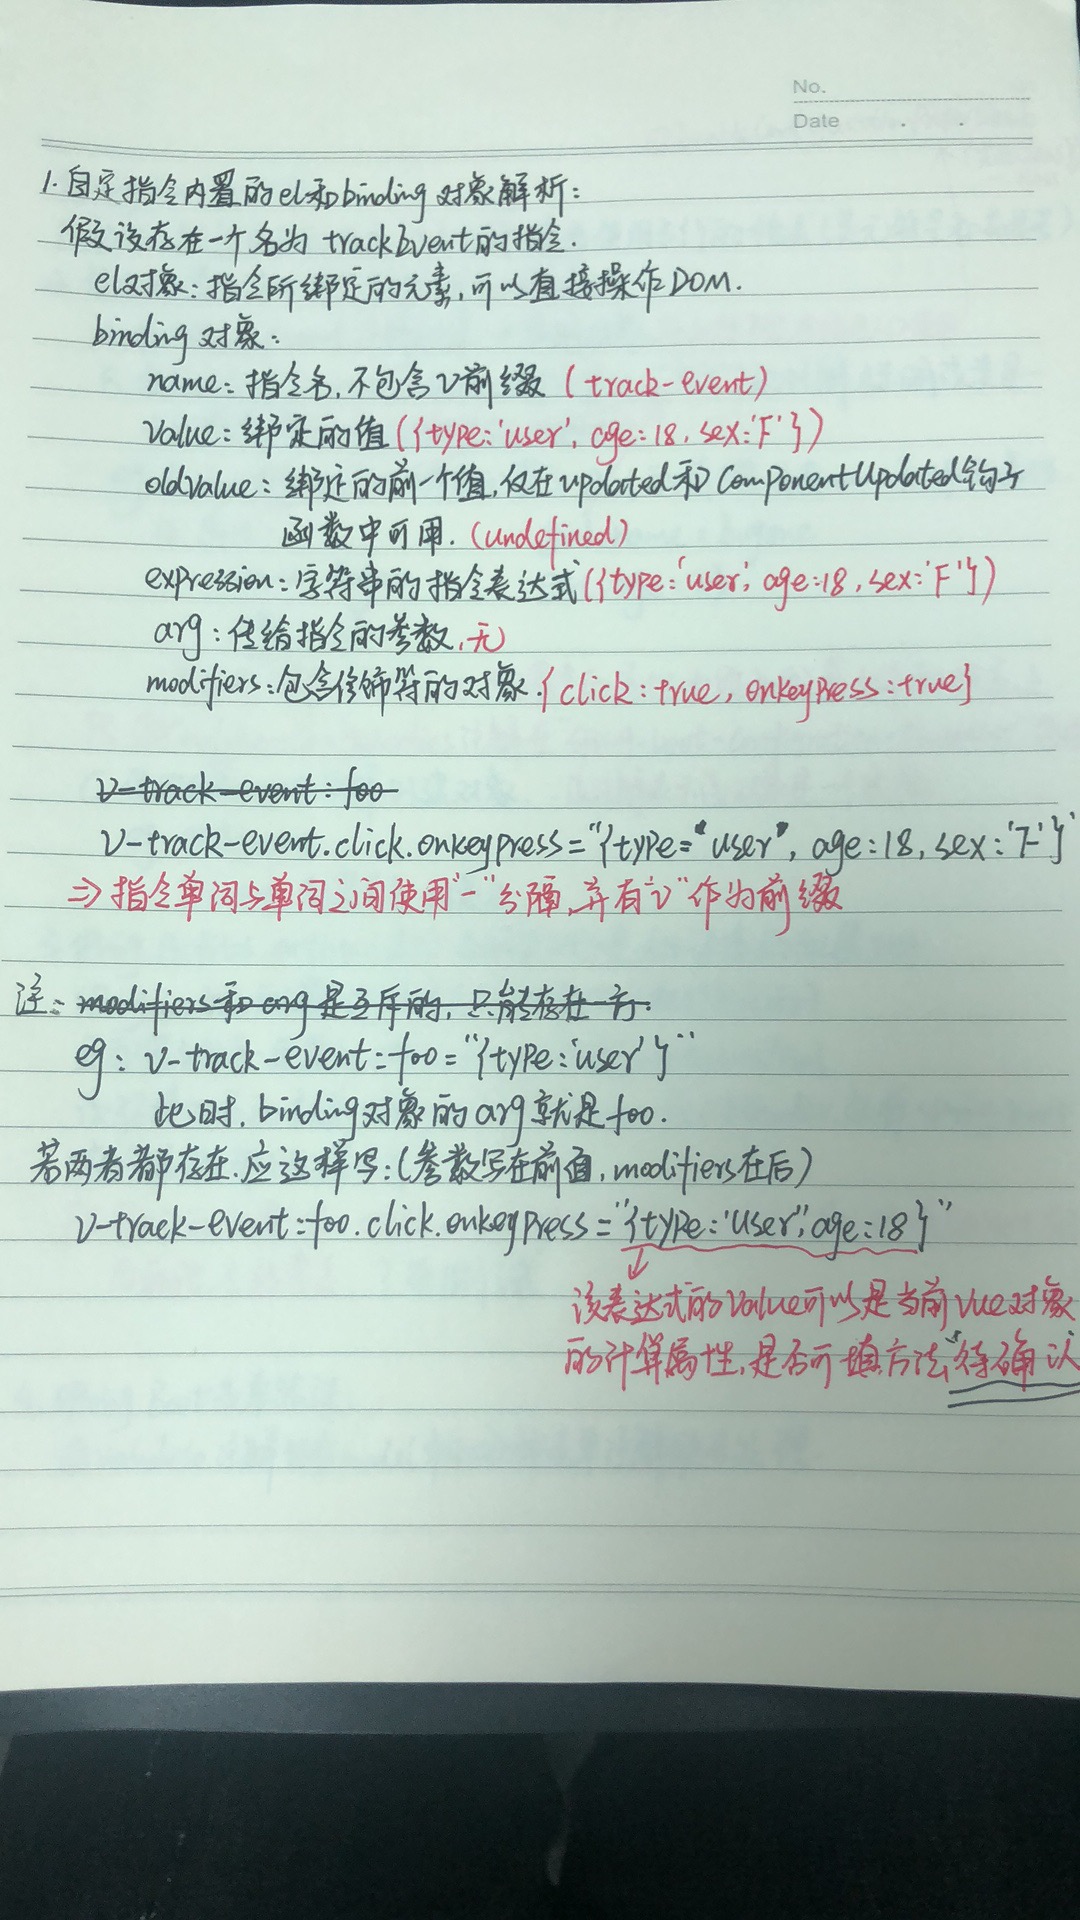 No.
Date . .
1. 自定指令内置的el和binding对象解析：
假设存在一个名为 trackEvent的指令.
el对象：指令所绑定的元素，可以直接操作DOM.
binding 对象：
name：指令名，不包含v前缀（track-event）
value：绑定的值（{type:'user', age:18, sex:'F'}）
oldvalue：绑定的前一个值，仅在updated和ComponentUpdated钩子
函数中可用.（undefined）
expression：字符串的指令表达式（{type:'user', age:18, sex:'F'}）
arg：传给指令的参数，无
modifiers：包含修饰符的对象.{click:true, onkeypress:true}
v-track-event:foo
v-track-event.click.onkeypress="{type="user", age:18, sex:'F'}"
=> 指令单词与单词之间使用"-"分隔，并有"v"作为前缀
注：modifiers和arg是互斥的，只能存在一方.
eg：v-track-event:foo="{type:'user'}"
此时，binding对象的arg就是foo.
若两者都存在，应这样写：（参数写在前面，modifiers在后）
v-track-event:foo.click.onkeypress="{type:'user', age:18}"
该表达式的value可以是当前vue对象
的计算属性，是否可填方法"待确认